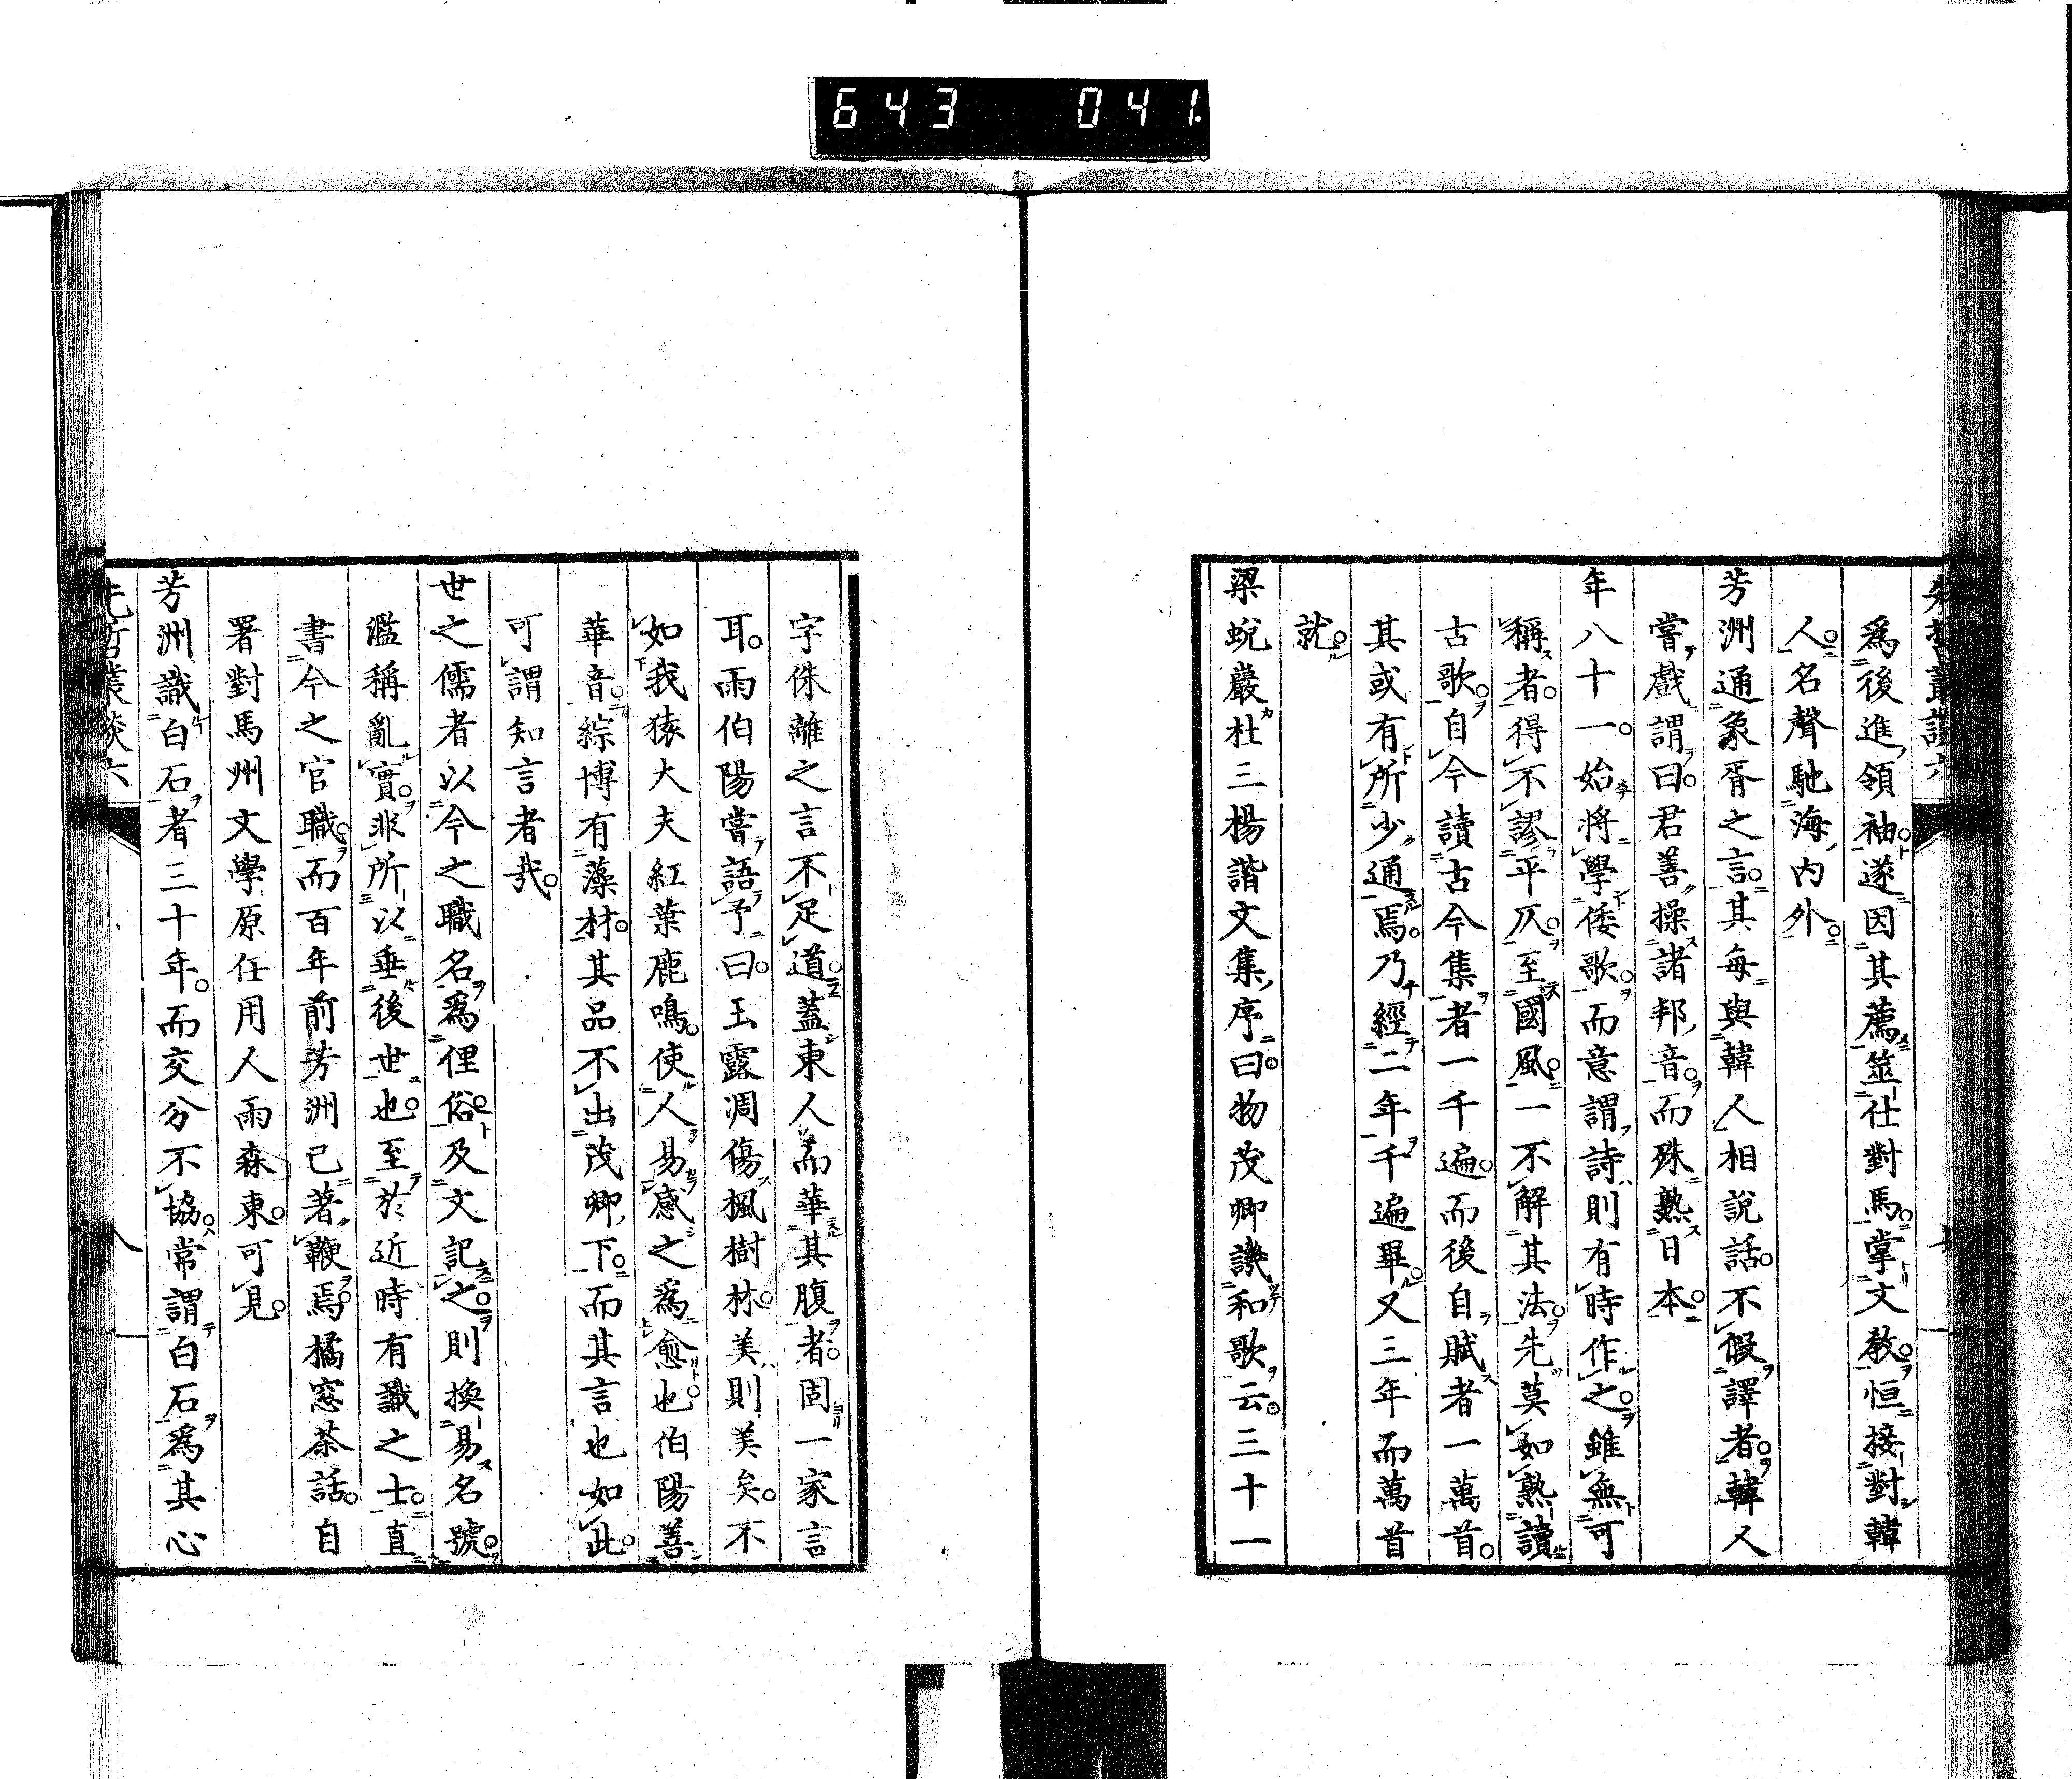 643 041
先哲叢談六
爲後進領袖。遂因其薦筮仕對馬。掌文教。恒接對韓
人。名聲馳海內外。
芳洲通象胥之言。其每與韓人相說話。不假譯者。韓人
嘗戲謂曰。君善操諸邦音。而殊熟日本。
年八十一。始將學倭歌。而意謂詩則有時作之。雖無可
稱者。得不謬平仄。至國風。一不解其法。先莫如熟讀
古歌。自今讀古今集者一千遍。而後自賦者一萬首。
其或有所少通焉。乃經二年千遍畢。又三年而萬首
就。
梁蛻巖杜三楊諧文集序曰。物茂卿譏和歌云。三十一
字侏離之言不足道。蓋東人而華其腹者。固一家言
耳。雨伯陽嘗語予曰。玉露凋傷楓樹林。美則美矣。不
如我猿大夫紅葉鹿鳴。使人易感之爲愈也。伯陽善
華音。綜博有藻材。其品不出茂卿下。而其言也如此。
可謂知言者哉。
世之儒者以今之職名爲俚俗。及文記之。則換易名號。
濫稱亂實。非所以垂後世也。至於近時有識之士。直
書今之官職。而百年前芳洲已著鞭焉。橘窓茶話。自
署對馬州文學原任用人雨森東。可見。
芳洲識白石者三十年。而交分不協。常謂白石爲其心
先哲叢談六